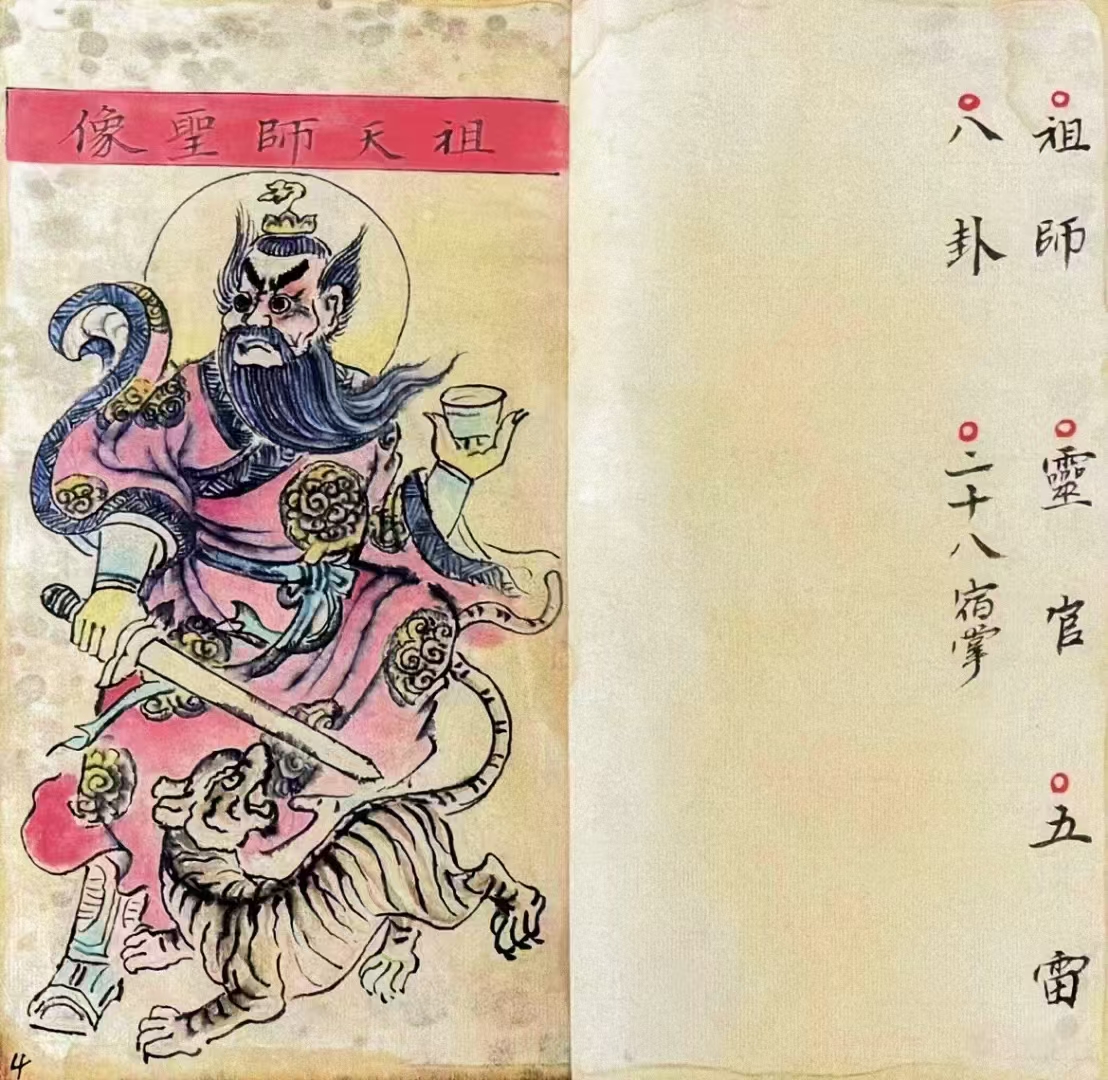 祖天師聖像
祖師 靈官 五雷
八卦 二十八宿掌
4